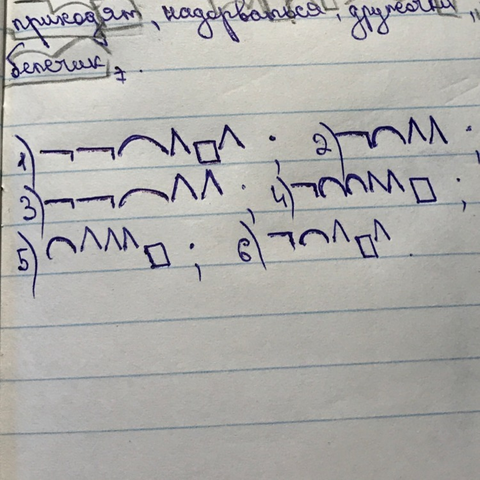 приходят, надорваться, дружочки,
бепечик,
1) ; 2) ;
3) ; 4) ;
5) ; 6) .